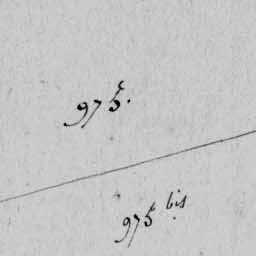 975.
975 bis